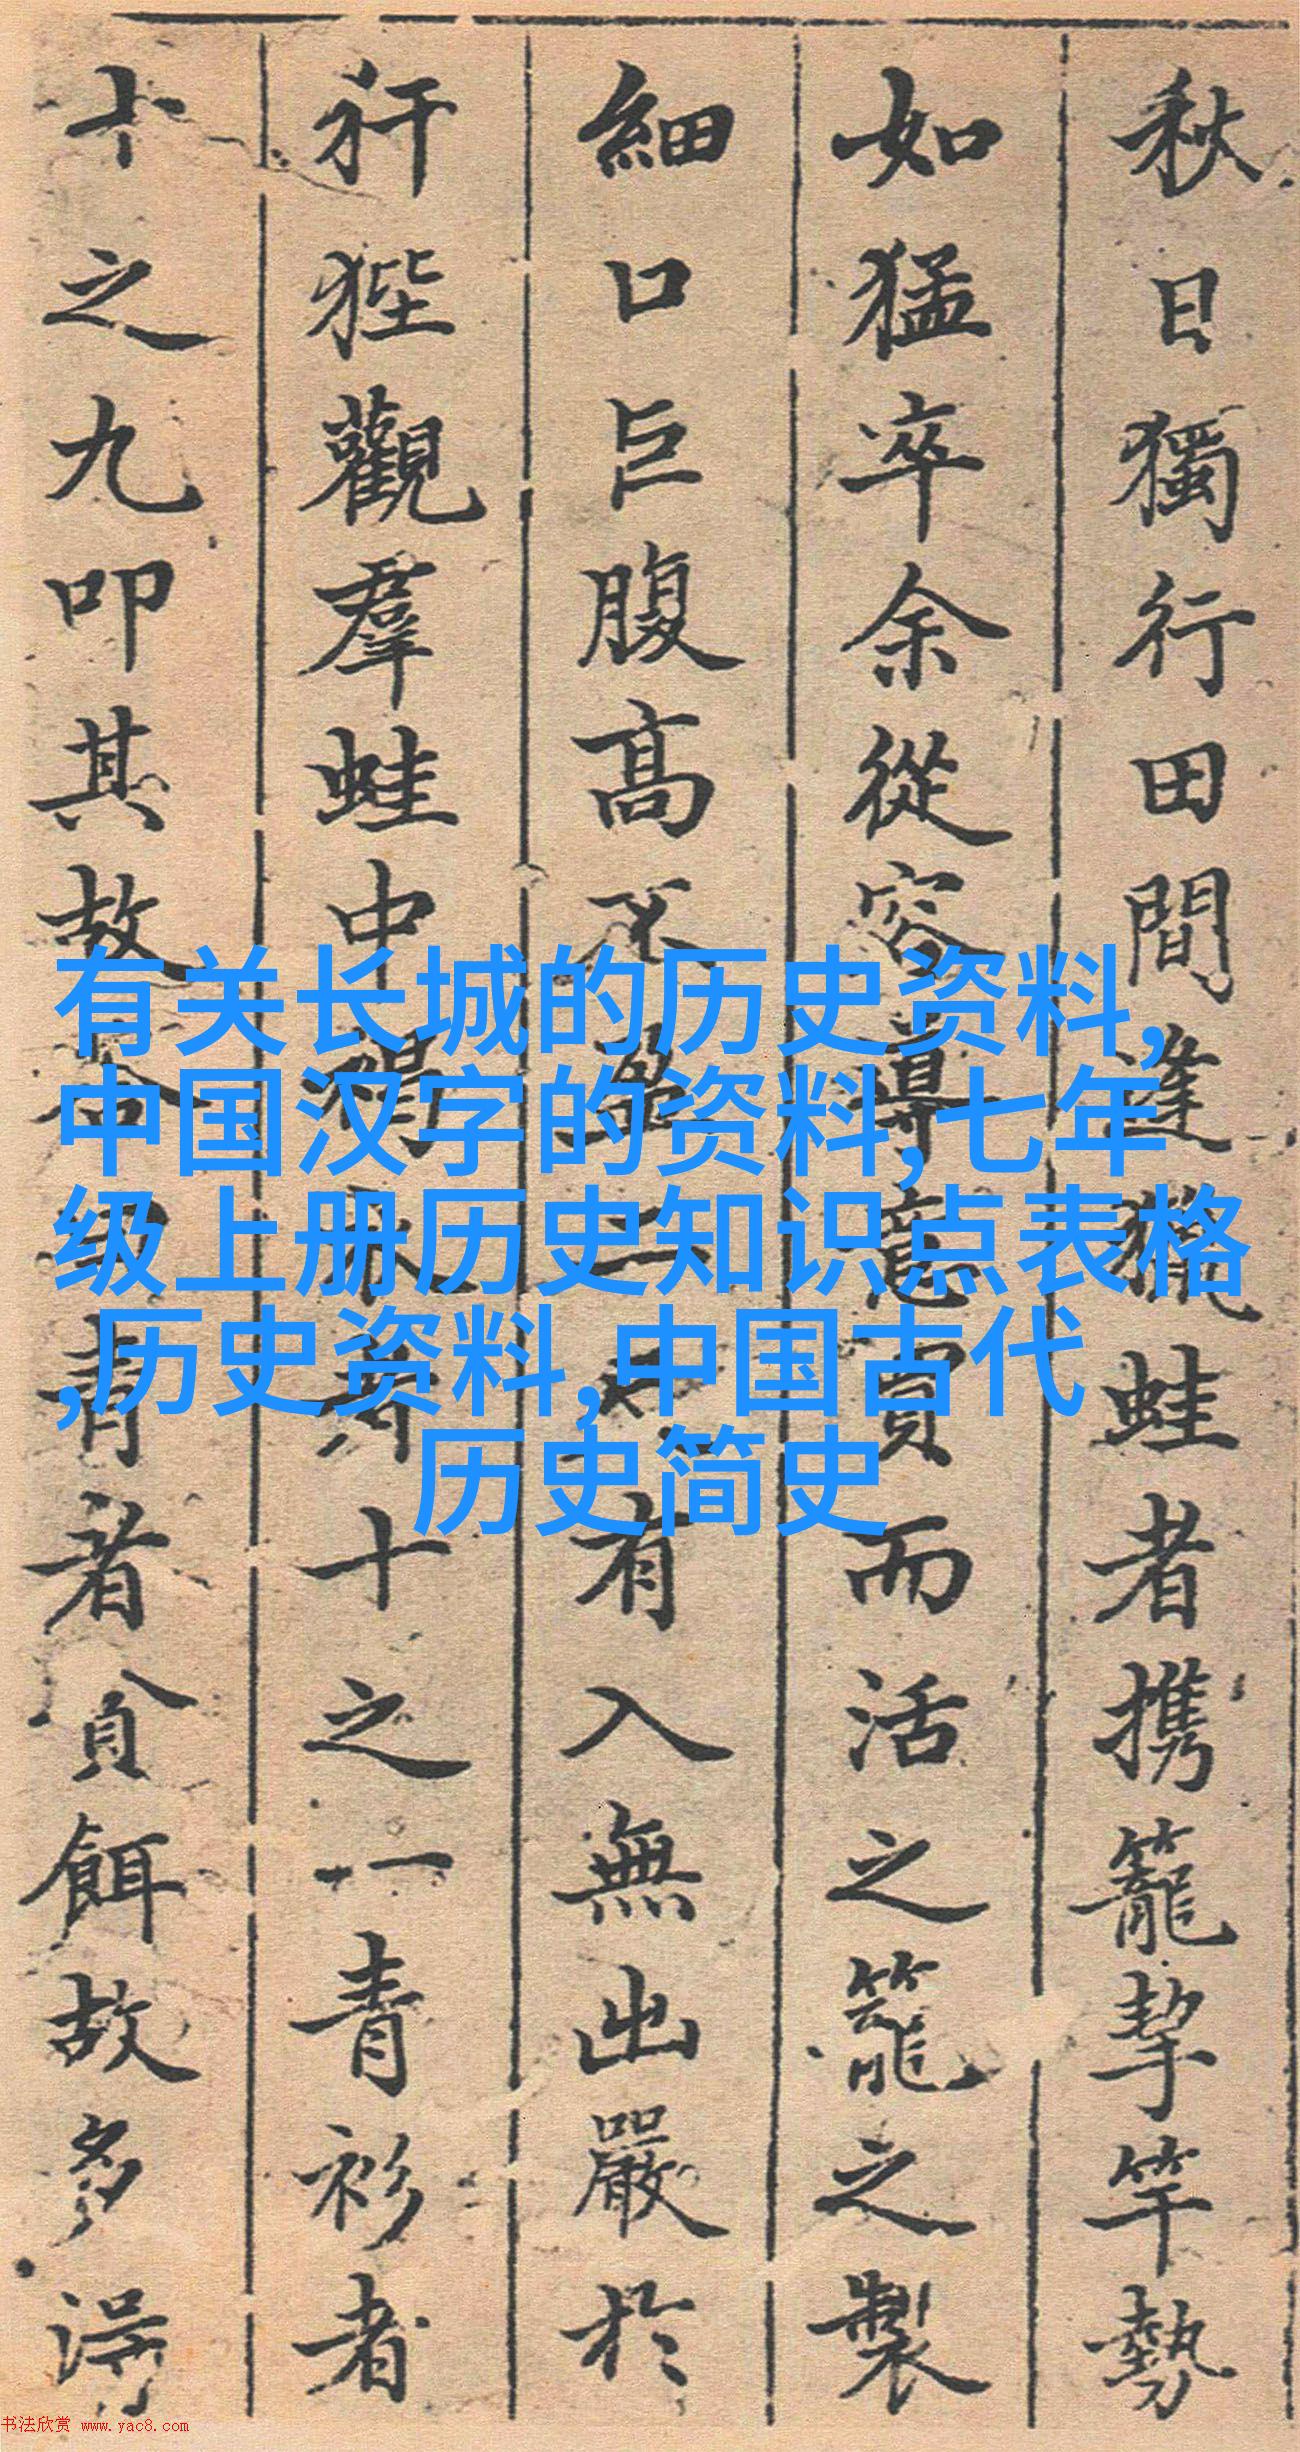 秋日獨行田間逢獵蛙者携籠挈竿勢
如猛卒余從容導意買而活之籠之製
細口巨腹高不盈二尺有入無出嚴於
犴狴觀羣蛙中褐衣者十之一青衫者
十之九叩其故答曰青者貪餌故多得
有关长城的历史资料,
中国汉字的资料,七年
级上册历史知识点表格
,历史资料,中国古代
历史简史
书法欣赏 www.yac8.com